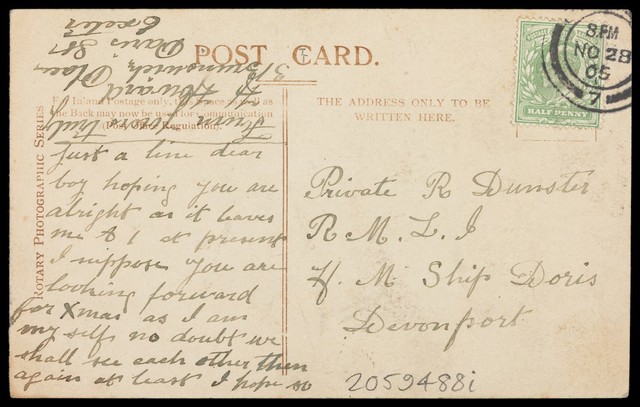 POST CARD.
For Inland Postage only, this Space as well as
the Back may now be used for Communication
(Post Office Regulation).
THE ADDRESS ONLY TO BE
WRITTEN HERE.
ROTARY PHOTOGRAPHIC SERIES
HALF PENNY
8.PM
NO 28
05
7
Just a line dear
boy hoping you are
alright as it leaves
me A 1 at present
I suppose you are
looking forward
for Xmas as I am
my self no doubt we
shall see each other then
again at least I hope so
From yours truly
A Howard
3/2
Place
Paris St
Exeter
Private R Dunster
R M. L. I
H. M Ship Doris
Devonport
2059488i